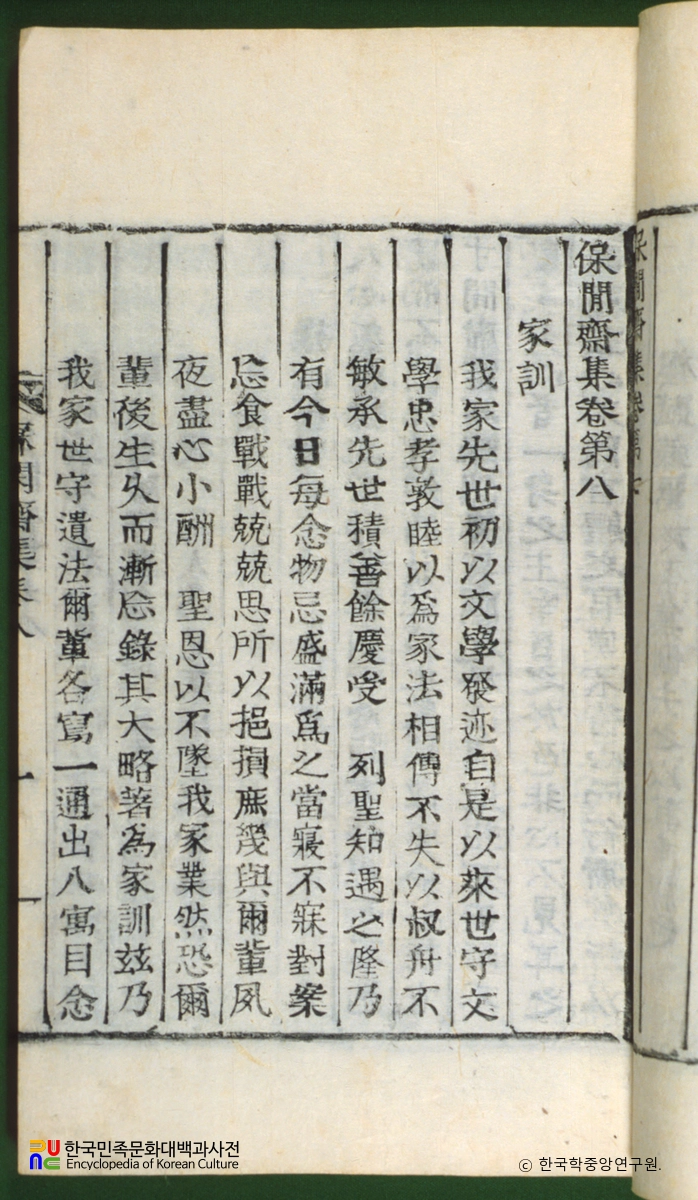 保閒齋集卷第八
家訓
我家先世初以文學發迹自是以來世守文
學忠孝敦睦以爲家法相傳不失以叔舟不
敏承先世積善餘慶受 列聖知遇之隆乃
有今日每念物忌盛滿爲之當寢不寐對案
忘食戰戰兢兢思所以挹損庶幾與爾輩夙
夜盡心小酬 聖恩以不墜我家業然恐爾
輩後生久而漸忘錄其大略著爲家訓玆乃
我家世守遺法爾輩各寫一通出入寓目念
保閒齋集卷八
一
한국민족문화대백과사전
Encyclopedia of Korean Culture
ⓒ 한국학중앙연구원.